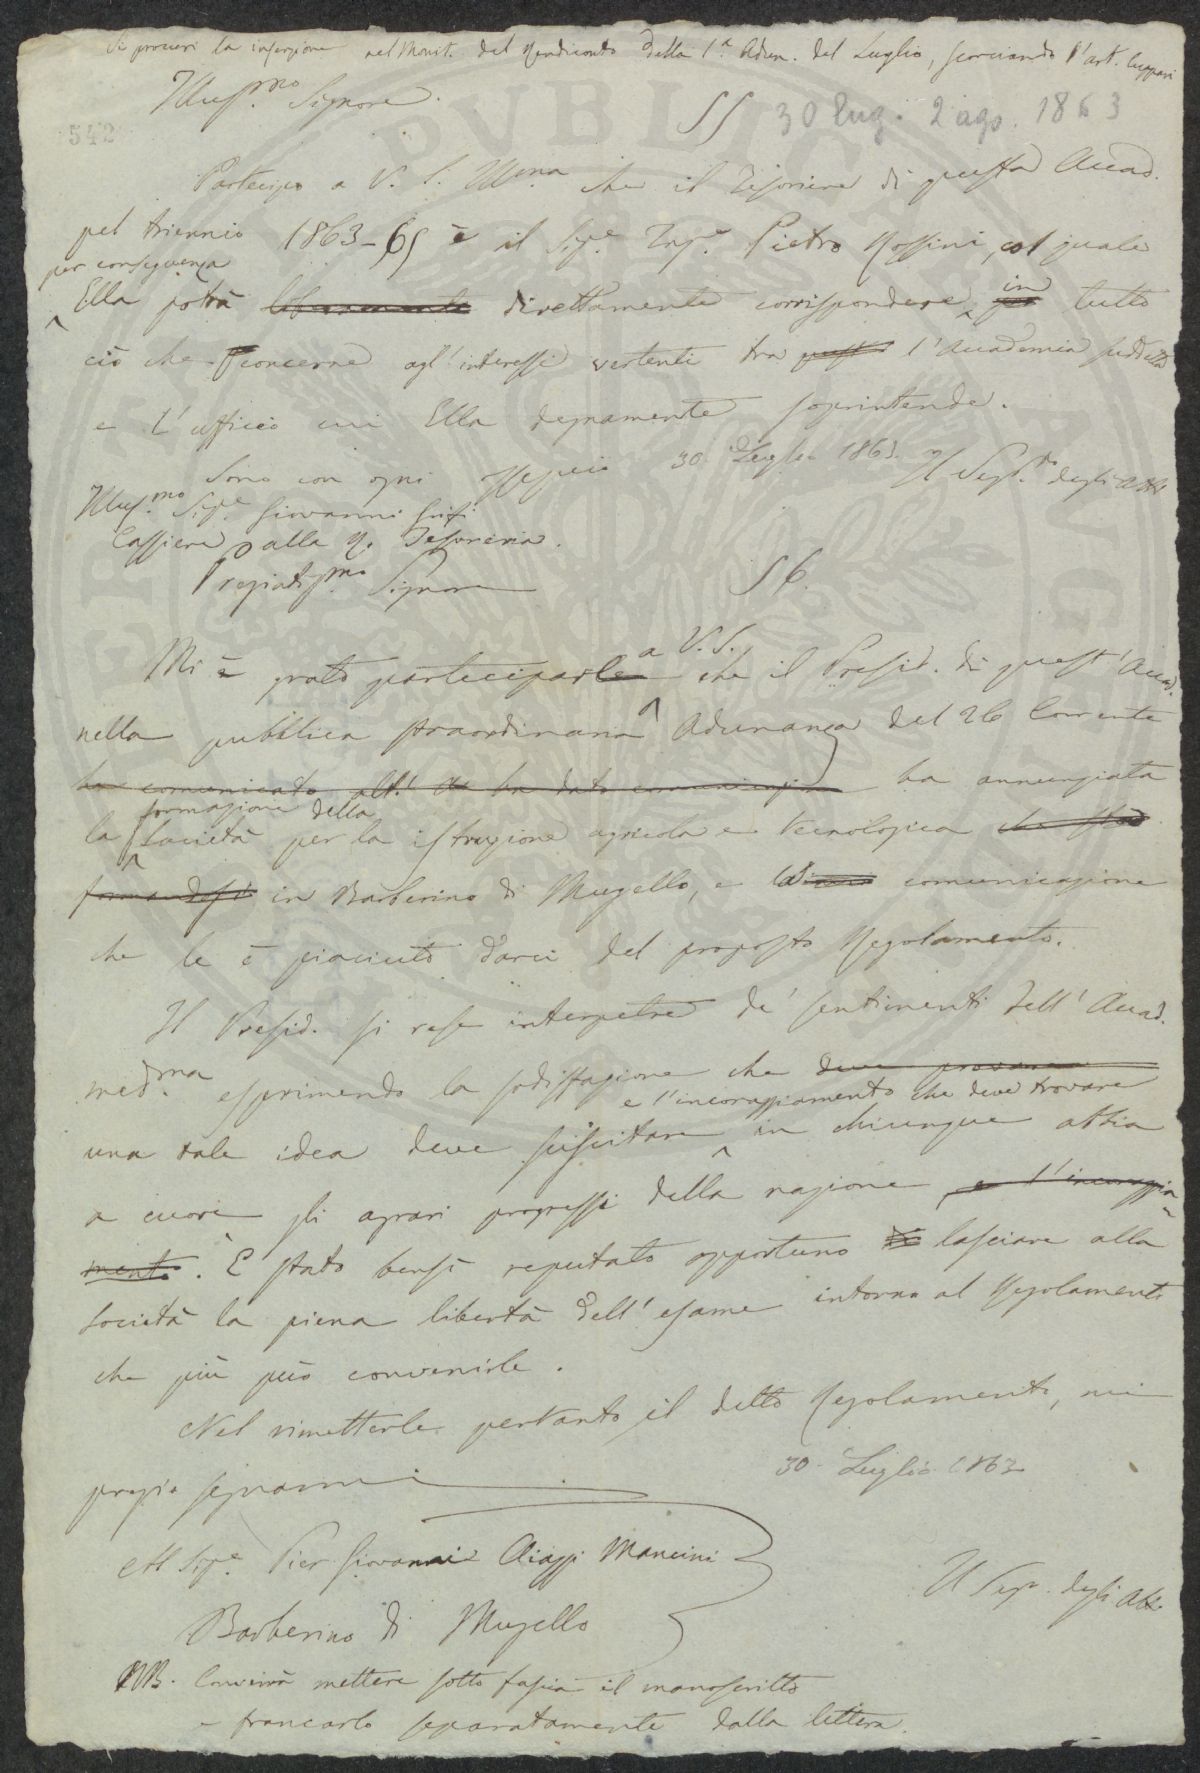 Si procuri la inserzione nel Monit. del Rendiconto della 1.a Adun. del Luglio, scorciando l'art. Cuppari
Illus.mo Signore.
55 30 lug. 2 ago. 1863
542
Partecipo a V. S. Ill.ma che il Tesoriere di questa Accad.
pel triennio 1863-65 è il Sig.e Ing.e Pietro Rossini, col quale
per conseguenza
Ella potrà liberamente direttamente corrispondere in per tutto
ciò che concerne agl'interessi vertenti tra questa l'Accademia suddetta
e l'ufficio cui Ella degnamente soprintende.
Sono con ogni ossequio 30 Luglio 1863. Il Seg.rio degli Atti
Illus.mo Sig.e Giovanni Grifi
Cassiere alla R. Tesoreria.
Pregiatis.mo Signore 56.
Mi è grato parteciparle a V. S. che il Presid. di quest'Accad.
nella pubblica straordinaria Adunanza del 26 Corrente
ha comunicato all' ha dato comunicazione ha annunziata
la formazione della
Società per la istruzione agricola e tecnologica che sta
formandosi in Barberino di Mugello, e comunicazione
che le è piaciuto darci del proposto Regolamento.
Il Presid. si rese interpetre de' sentimenti dell'Accad.
med.ma esprimendo la sodisfazione che deve provare
e l'incoraggiamento che deve trovare
una tale idea deve suscitare in chiunque abbia
a cuore gli agrari progressi della nazione e l'incoraggia-
mento. È stato bensì reputato opportuno di lasciare alla
Società la piena libertà dell'esame intorno al Regolamento
che più può convenirle.
Nel rimetterle pertanto il detto Regolamento, mi
pregio segnarmi 30 Luglio 1863
Al Sig.e Pier Giovanni Aiazzi Mancini
Il Seg.o degli Atti
Barberino di Mugello
NB. Converrà mettere sotto fascia il manoscritto
e francarlo separatamente dalla lettera.